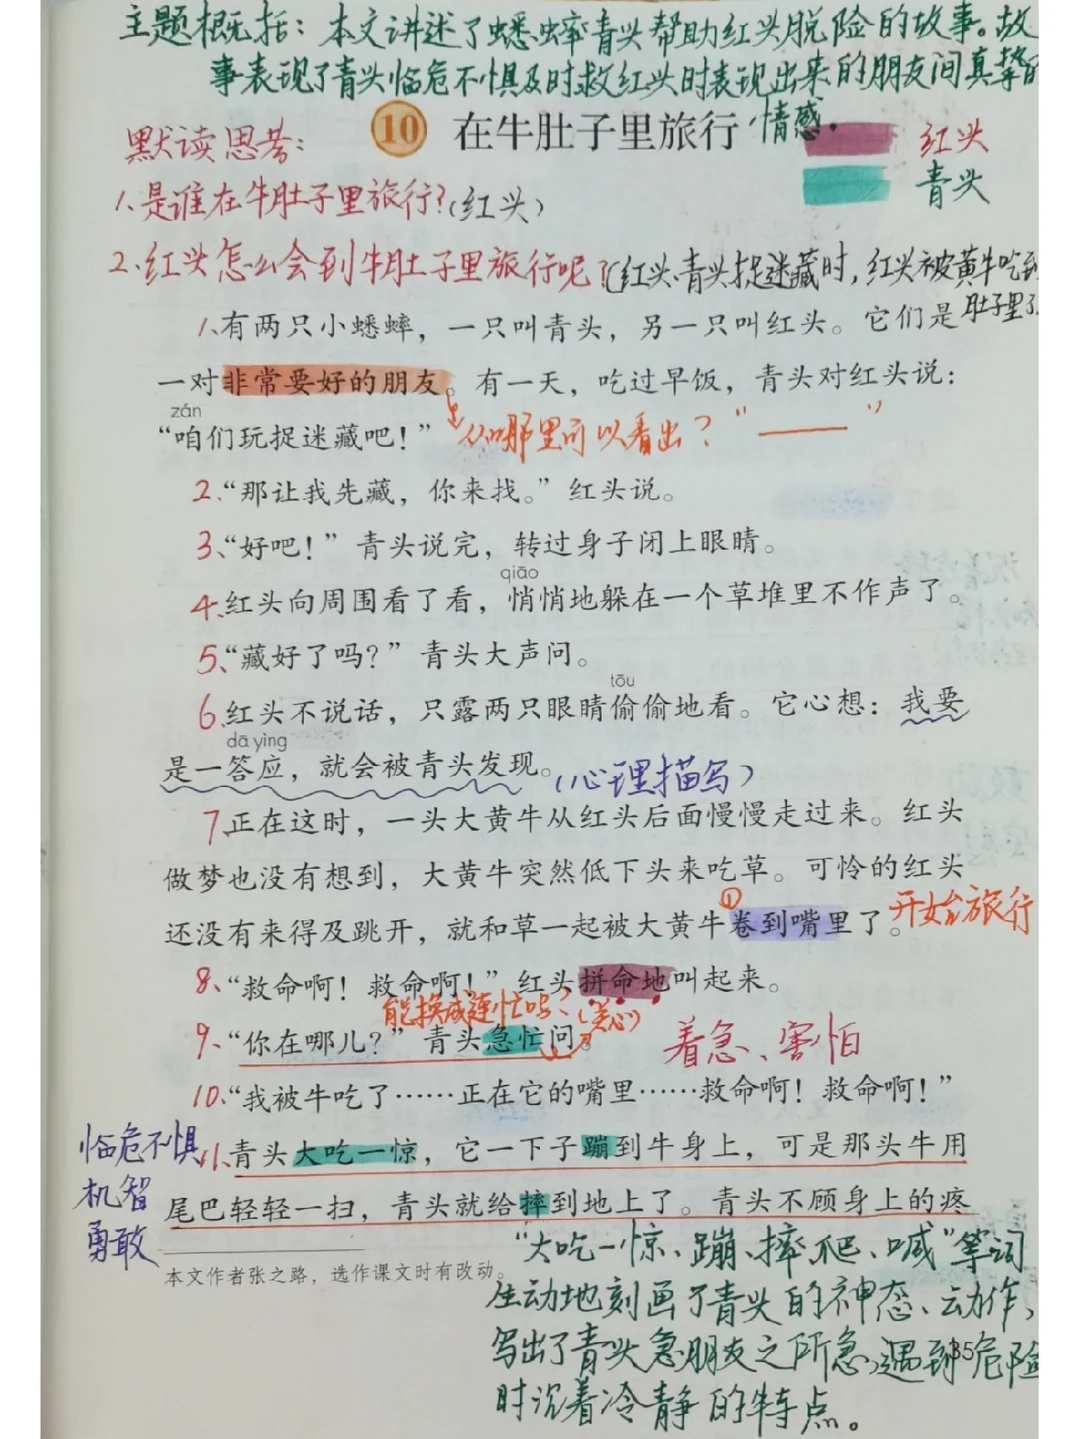 主题概括：本文讲述了蟋蟀青头帮助红头脱险的故事。故
事表现了青头临危不惧及时救红头时表现出来的朋友间真挚的
情感.
10 在牛肚子里旅行
红头
青头
默读思考：
1、是谁在牛肚子里旅行？（红头）
2、红头怎么会到牛肚子里旅行呢？（红头、青头捉迷藏时，红头被黄牛吃到
肚子里了
1、有两只小蟋蟀，一只叫青头，另一只叫红头。它们是
一对非常要好的朋友。有一天，吃过早饭，青头对红头说：
zán
“咱们玩捉迷藏吧！”
从哪里可以看出？“——”
2、“那让我先藏，你来找。”红头说。
3、“好吧！”青头说完，转过身子闭上眼睛。
qiāo
4、红头向周围看了看，悄悄地躲在一个草堆里不作声了。
5、“藏好了吗？”青头大声问。
tōu
6、红头不说话，只露两只眼睛偷偷地看。它心想：我要
dā yìng
是一答应，就会被青头发现。（心理描写）
7、正在这时，一头大黄牛从红头后面慢慢走过来。红头
做梦也没有想到，大黄牛突然低下头来吃草。可怜的红头
①
还没有来得及跳开，就和草一起被大黄牛卷到嘴里了。开始旅行
8、“救命啊！救命啊！”红头拼命地叫起来。
能换成连忙吗？（关心）
9、“你在哪儿？”青头急忙问。
着急、害怕
10、“我被牛吃了……正在它的嘴里……救命啊！救命啊！”
临危不惧
机智
勇敢
11、青头大吃一惊，它一下子蹦到牛身上，可是那头牛用
尾巴轻轻一扫，青头就给摔到地上了。青头不顾身上的疼
本文作者张之路，选作课文时有改动。
“大吃一惊、蹦、摔、爬、喊”等词
生动地刻画了青头的神态、动作，
写出了青头急朋友之所急，遇到危险
35
时沉着冷静的特点。